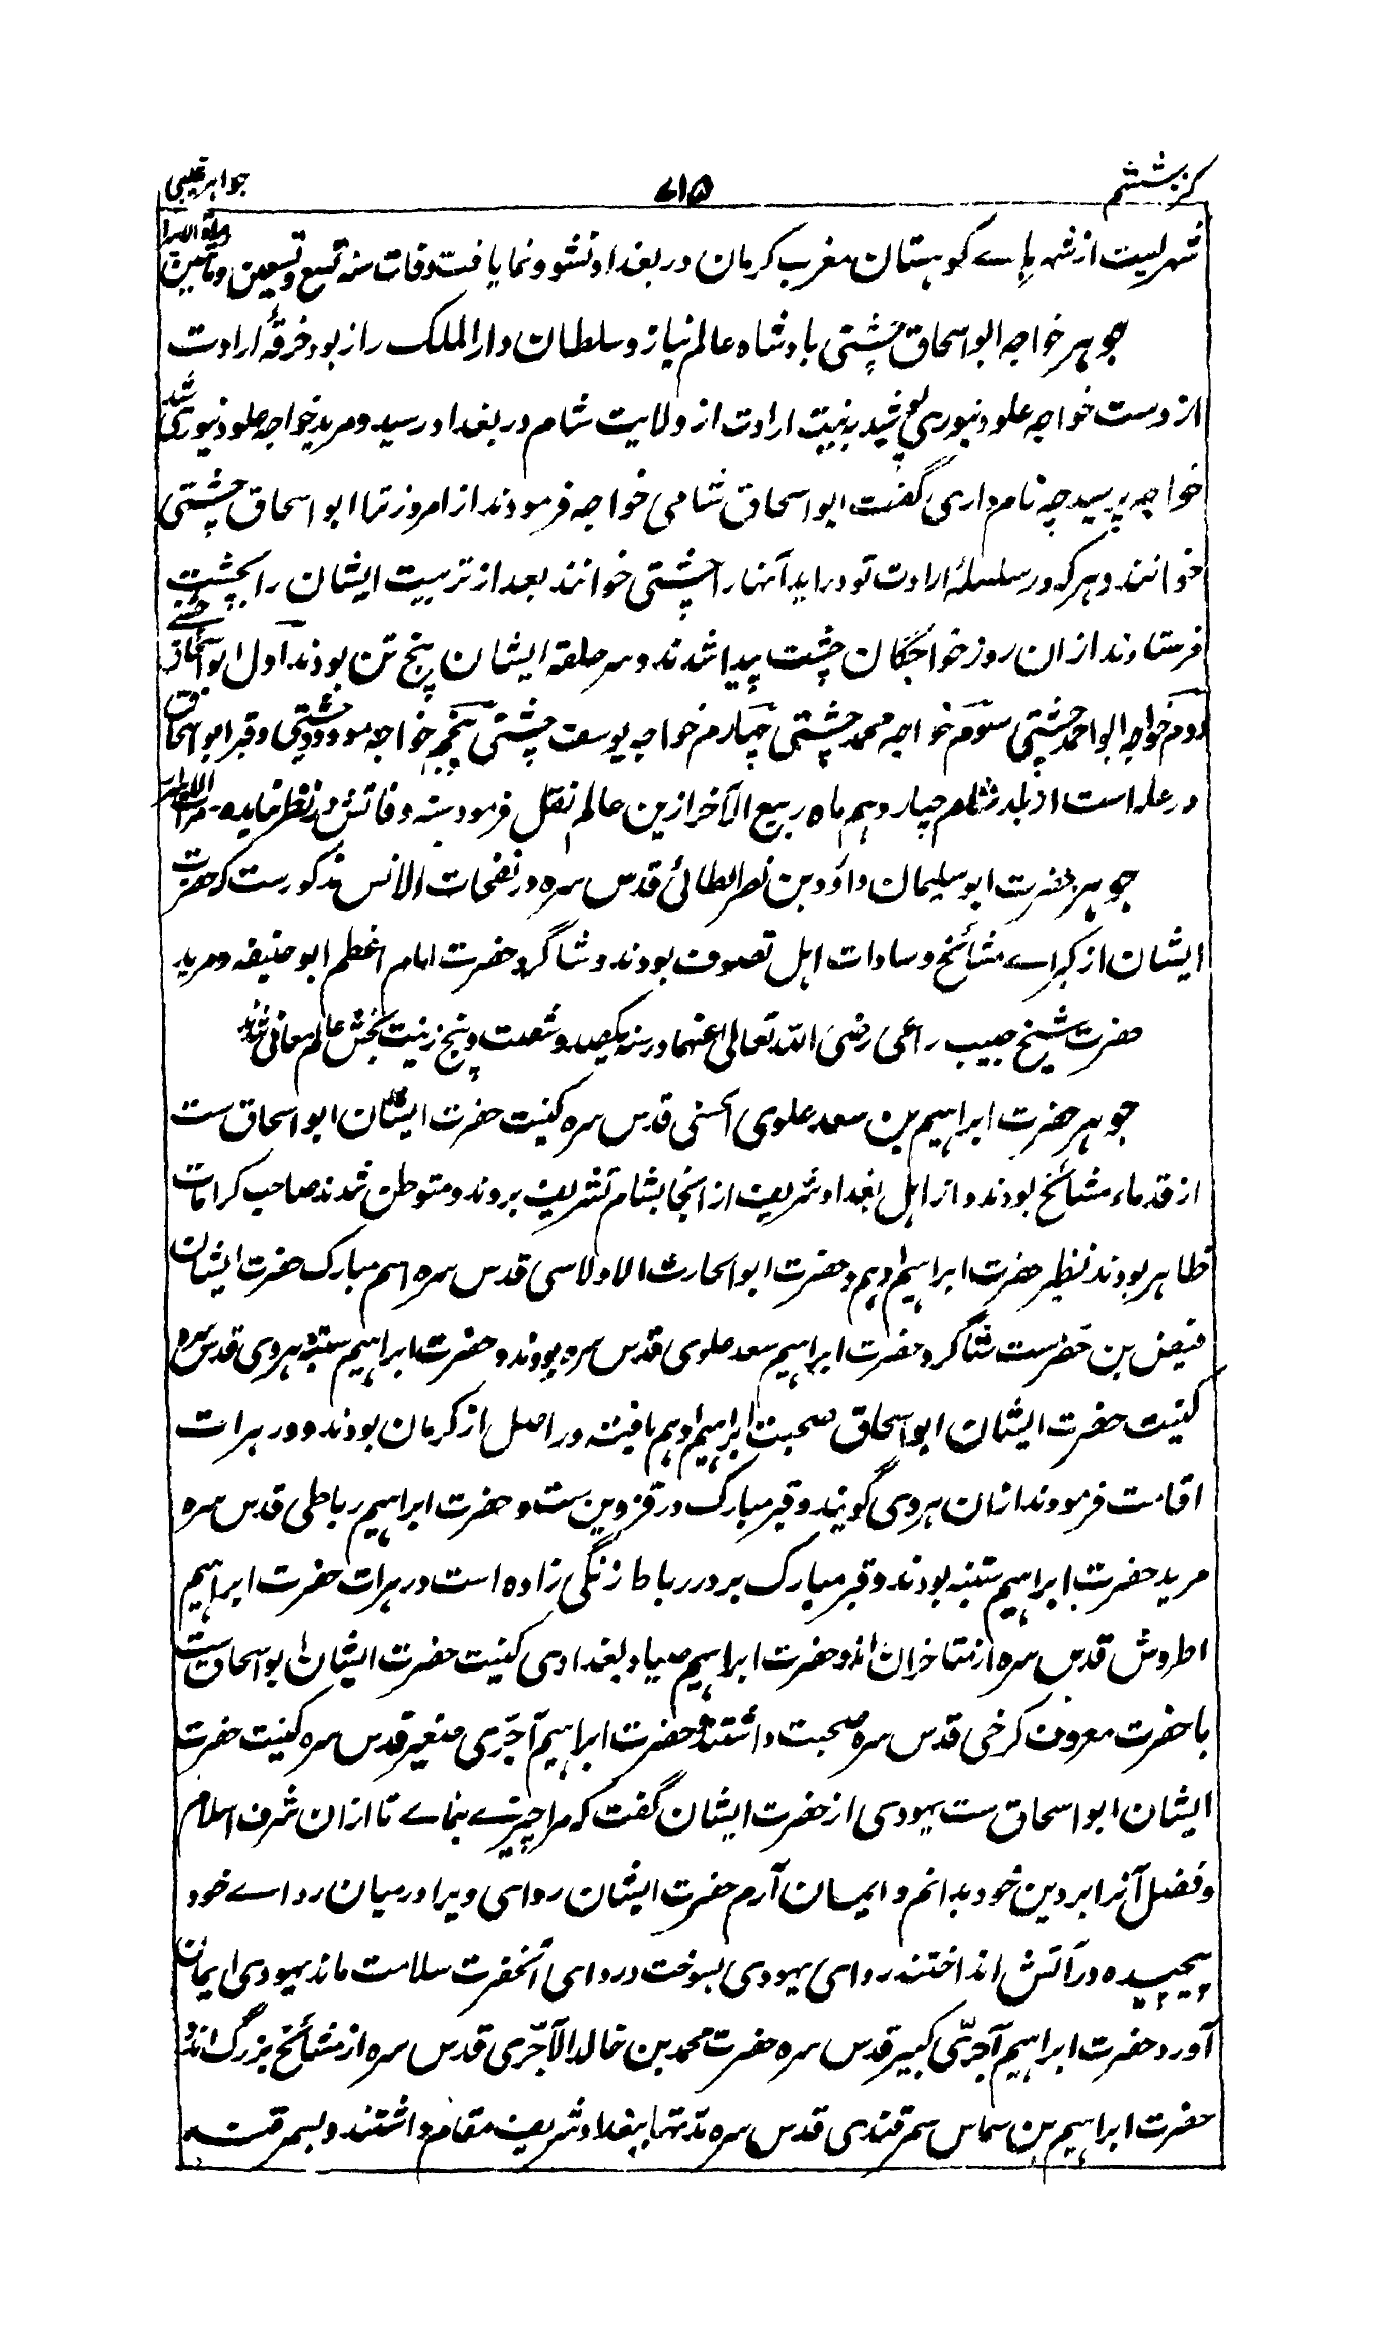 کنز ششم ۷۱۵ جواهر غیبی
شهریست از شهر هاے کوهستان مغرب کرمان در بغداد نشو و نما یافت وفات سنه تسع و تسعین و مأتین
جوهر خواجه ابو اسحاق چشتی بادشاه عالم نیاز و سلطان دار الملک راز بود خرقهٔ ارادت
از دست خواجه علو دینوری پوشید به نیت ارادت از ولایت شام در بغداد رسید و مرید خواجه علو دینوری شد
خواجه پرسید چه نام داری گفت ابو اسحاق شامی خواجه فرمودند از امروز ترا ابو اسحاق چشتی
خوانند و هر که در سلسلهٔ ارادت تو در اید آنها را چشتی خوانند بعد از تربیت ایشان را بچشت
فرستادند از ان روز خواجگان چشت پیدا شدند و سر حلقه ایشان پنج تن بودند اول ابو اسحاق چشتی
دوم خواجه ابو احمد چشتی سوم خواجه محمد چشتی چهارم خواجه یوسف چشتی پنجم خواجه مودود چشتی و قبر ابو اسحاق
در عکه است از بلد شام چهاردهم ماه ربیع الآخر ازین عالم نقل فرمود سنه وفاتش در نظر نیامده
جوهر حضرت ابو سلیمان داؤد بن نصر الطائی قدس سره در نفحات الانس مذکورست که حضرت
ایشان از کبراے مشائخ و سادات اهل تصوف بودند و شاگرد حضرت امام اعظم ابو حنیفه و مرید
حضرت شیخ حبیب راعی رضی الله تعالی عنهما در سنه یکصد و شصت و پنج زینت بخش عالم معانی شدند
جوهر حضرت ابراهیم بن سعد علوی الحسنی قدس سره کنیت حضرت ایشان ابو اسحاق ست
از قدماء مشائخ بودند و از اهل بغداد شریف از انجا بشام تشریف بردند و متوطن شدند صاحب کرامات
ظاهر بودند نظیر حضرت ابراهیم ادهم و حضرت ابو الحارث الاولاسی قدس سره اسم مبارک حضرت ایشان
فیض بن خضرست شاگرد حضرت ابراهیم سعد علوی قدس سره بودند و حضرت ابراهیم ستنبه هروی قدس سره
کنیت حضرت ایشان ابو اسحاق صحبت ابراهیم ادهم یافته در اصل از کرمان بودند و در هرات
اقامت فرمودند ازان هروی گویند و قبر مبارک در قزوین ست و حضرت ابراهیم رباطی قدس سره
مرید حضرت ابراهیم ستنبه بودند و قبر مبارک بر در رباط زنگی زاده است در هرات حضرت ابراهیم
اطروش قدس سره از متاخران اند و حضرت ابراهیم صیاد بغدادی کنیت حضرت ایشان ابو اسحاق ست
با حضرت معروف کرخی قدس سره صحبت داشتند و حضرت ابراهیم آجری صغیر قدس سره کنیت حضرت
ایشان ابو اسحاق ست یهودی از حضرت ایشان گفت که مرا چیزے بنماے تا ازان شرف اسلام
و فضل آنرا بر دین خود بدانم و ایمان آرم حضرت ایشان رداسی ویرا درمیان رداے خود
پیچیده در آتش انداختند رداسی یهودی بسوخت و رداسی آنحضرت سلامت ماند یهودی ایمان
آورد حضرت ابراهیم آجری کبیر قدس سره حضرت محمد بن خالد الآجری قدس سره از مشائخ بزرگ اند
حضرت ابراهیم بن شماس سمرقندی قدس سره مدتها ببغداد شریف مقام داشتند و بسمرقند